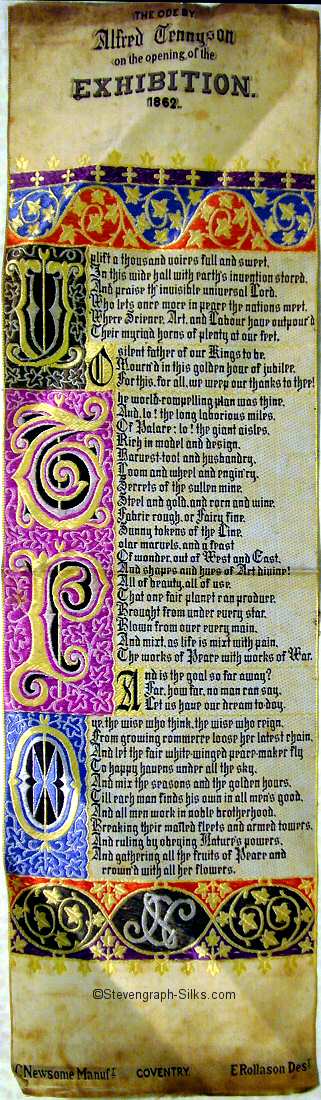 THE ODE BY
Alfred Tennyson
on the opening of the
EXHIBITION.
1862.
Uplift a thousand voices full and sweet,
In this wide hall with earth's invention stored,
And praise th' invisible universal Lord,
Who lets once more in peace the nations meet,
Where Science, Art, and Labour have outpour'd
Their myriad horns of plenty at our feet.
O silent father of our Kings to be,
Mourn'd in this golden hour of jubilee,
For this, for all, we weep our thanks to thee!
The world-compelling plan was thine,
And, lo! the long laborious miles
Of Palace; lo! the giant aisles,
Rich in model and design;
Harvest-tool and husbandry,
Loom and wheel and engin'ry,
Secrets of the sullen mine,
Steel and gold, and corn and wine,
Fabric rough, or Fairy fine,
Sunny tokens of the Line,
Polar marvels, and a feast
Of wonder, out of West and East,
And shapes and hues of Art divine!
All of beauty, all of use,
That one fair planet can produce,
Brought from under every star,
Blown from over every main,
And mixt, as life is mixt with pain,
The works of Peace with works of War.
And is the goal so far away?
Far, how far, no man can say,
Let us have our dream to-day.
O ye, the wise who think, the wise who reign,
From growing commerce loose her latest chain,
And let the fair white-winged peace-maker fly
To happy havens under all the sky,
And mix the seasons and the golden hours,
Till each man finds his own in all men's good,
And all men work in noble brotherhood,
Breaking their mailed fleets and armed towers,
And ruling by obeying Nature's powers,
And gathering all the fruits of Peace and
crown'd with all her flowers.
©Stevengraph-Silks.com
C Newsome Manufr COVENTRY. E Rollason Dest